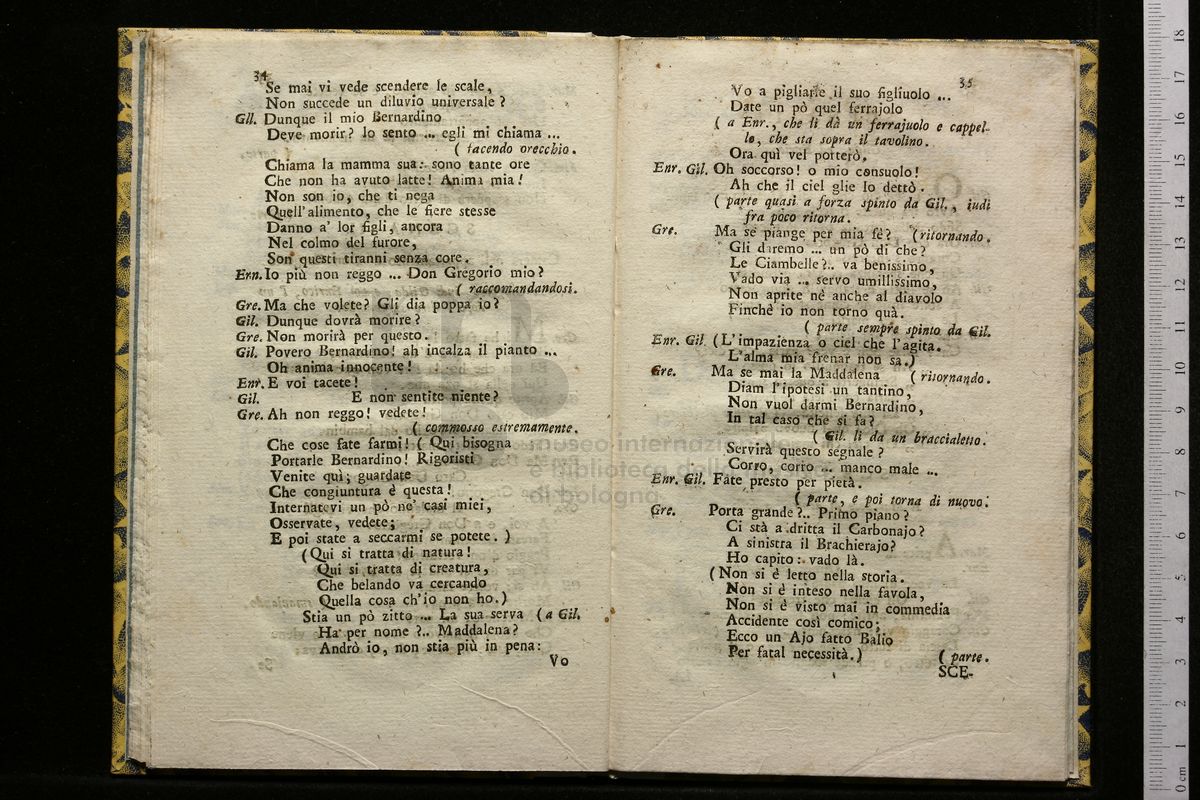 34
Se mai vi vede scendere le scale,
Non succede un diluvio universale?
Gil. Dunque il mio Bernardino
Deve morir? Io sento ... egli mi chiama ...
( tacendo orecchio.
Chiama la mamma sua: sono tante ore
Che non ha avuto latte! Anima mia!
Non son io, che ti nega
Quell'alimento, che le fiere stesse
Danno a' lor figli, ancora
Nel colmo del furore,
Son questi tiranni senza core.
Ern. Io più non reggo ... Don Gregorio mio?
( raccomandandosi.
Gre. Ma che volete? Gli dia poppa io?
Gil. Dunque dovrà morire?
Gre. Non morirà per questo.
Gil. Povero Bernardino! ah incalza il pianto ...
Oh anima innocente!
Enr. E voi tacete!
Gil. E non sentite niente?
Gre. Ah non reggo! vedete!
( commosso estremamente.
Che cose fate farmi! ( Qui bisogna
Portarle Bernardino! Rigoristi
Venite quì; guardate
Che congiuntura è questa!
Internatevi un pò ne' casi miei,
Osservate, vedete;
E poi state a seccarmi se potete. )
(Qui si tratta di natura!
Qui si tratta di creatura,
Che belando va cercando
Quella cosa ch'io non ho.)
Stia un pò zitto ... La sua serva (a Gil.
Ha per nome?.. Maddalena?
Andrò io, non stia più in pena:
Vo
35
Vo a pigliarle il suo figliuolo ...
Date un pò quel ferrajolo
( a Enr., che li dà un ferrajuolo e cappel-
lo, che sta sopra il tavolino.
Ora quì vel porterò.
Enr. Gil. Oh soccorso! o mio consuolo!
Ah che il ciel glie lo dettò.
( parte quasi a forza spinto da Gil., indi
fra poco ritorna.
Gre. Ma se piange per mia fè? (ritornando.
Gli daremo ... un pò di che?
Le Ciambelle?.. va benissimo,
Vado via ... servo umilissimo,
Non aprite nè anche al diavolo
Finchè io non torno quà.
( parte sempre spinto da Gil.
Enr. Gil. (L'impazienza o ciel che l'agita.
L'alma mia frenar non sa.)
Gre. Ma se mai la Maddalena ( ritornando.
Diam l'ipotesi un tantino,
Non vuol darmi Bernardino,
In tal caso che si fa?
( Gil. li da un braccialetto.
Servirà questo segnale?
Corro, corro ... manco male ...
Enr. Gil. Fate presto per pietà.
( parte, e poi torna di nuovo.
Gre. Porta grande?.. Primo piano?
Ci stà a dritta il Carbonajo?
A sinistra il Brachierajo?
Ho capito: vado là.
(Non si è letto nella storia.
Non si è inteso nella favola,
Non si è visto mai in commedia
Accidente così comico;
Ecco un Ajo fatto Balio
Per fatal necessità.) ( parte.
SCE-
museo internazionale
e biblioteca della
di bologna